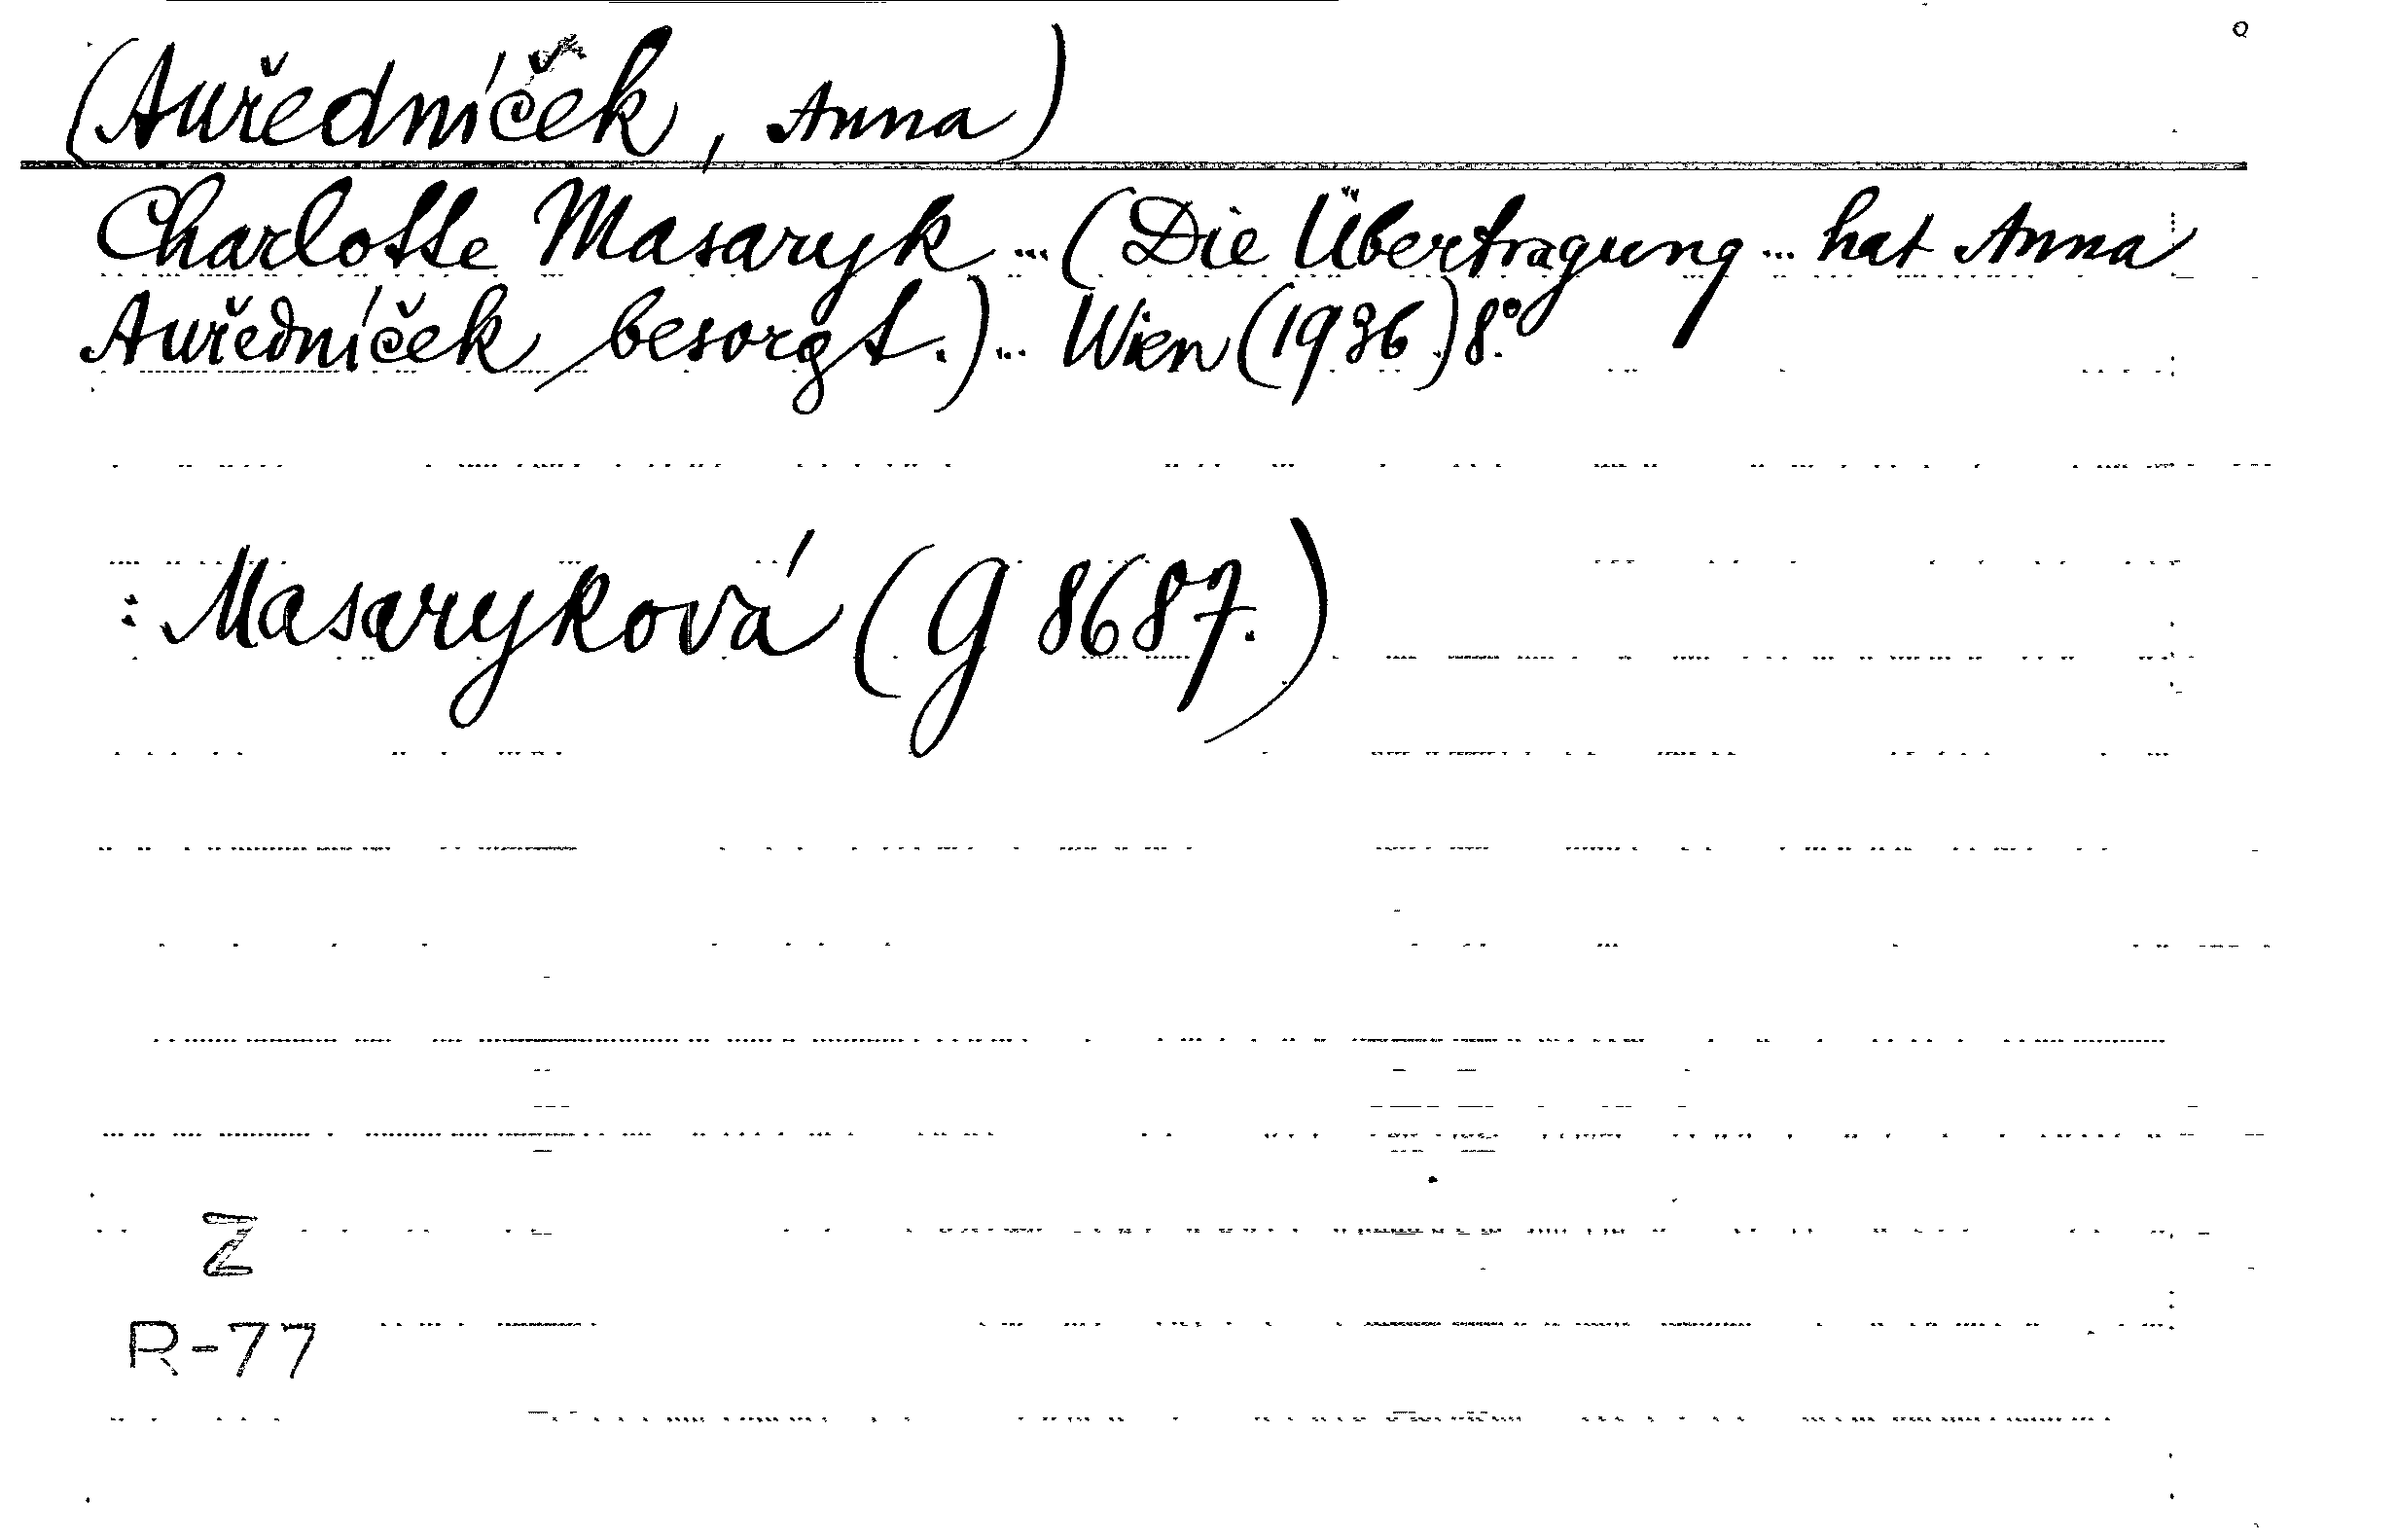 (Auředníček, Anna)
Charlotte Masaryk ... (Die Übertragung ... hat Anna
Auředníček besorgt.) ... Wien (1936) 8.°
: Masaryková (G 8687.)
Z
R-77